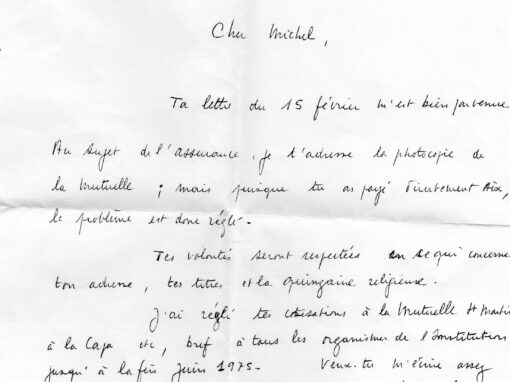 Cher Michel,
Ta lettre du 15 février m'est bien parvenue
Au sujet de l'assurance, je t'adresse la photocopie de
la Mutuelle ; mais puisque tu as payé directement Aix,
le problème est donc réglé.
Tes volontés seront respectées en ce qui concerne
ton adresse, tes titres et la quinzaine religieuse.
J'ai réglé tes cotisations à la Mutuelle St Martin
à la Capa etc, bref à tous les organismes de l'Institution
jusqu'à la fin Juin 1975- Veux-tu m'écrire assez